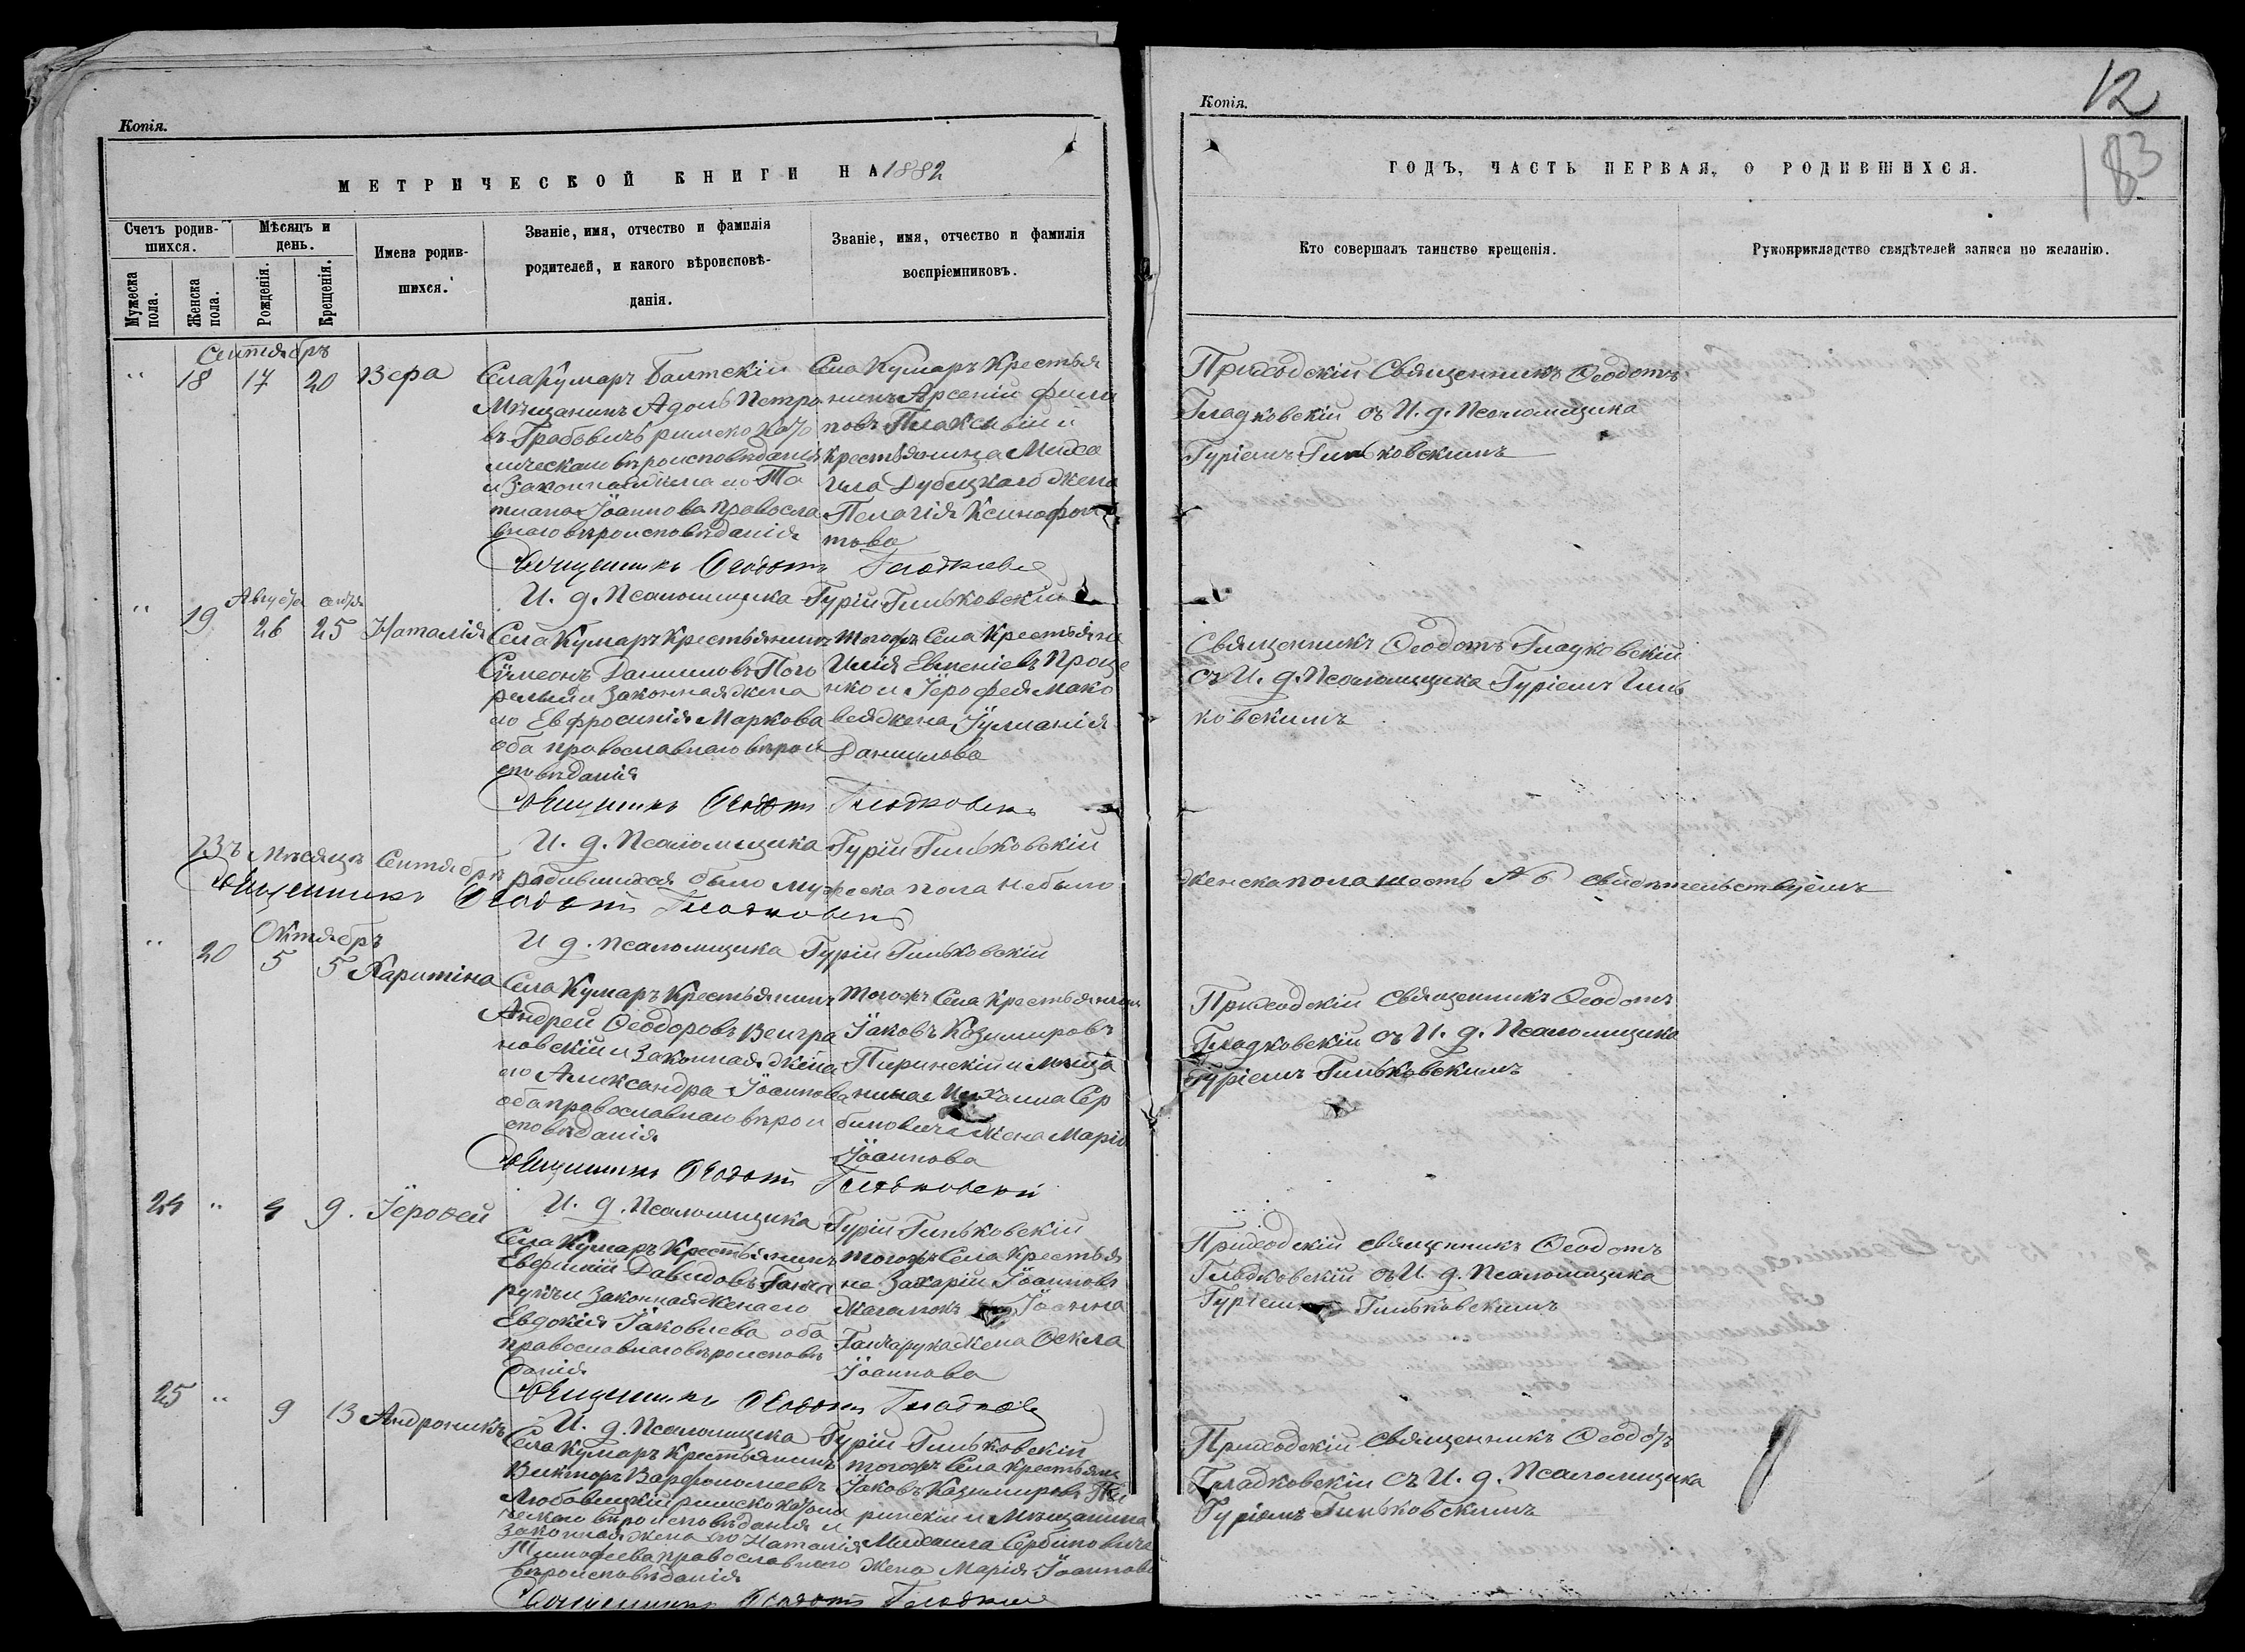 Копія.
МЕТРИЧЕСКОЙ КНИГИ НА 1882
Счетъ родив-
шихся.
Мужеска пола.
Женска пола.
Мѣсяцъ и день.
Рожденія.
Крещенія.
Имена родив-
шихся.
Званіе, имя, отчество и фамилія
родителей, и какого вѣроисповѣ-
данія.
Званіе, имя, отчество и фамилія
воспріемниковъ.
Сентябръ
" 18 17 20 Вера
Села Кумаръ Балтскій
Мѣщанинъ Адолъ Петро
въ Грабовичъ римско като
лическаго вѣроисповѣданія
и законная жена его Та
тиана Іоаннова православ
внаго вѣроисповѣданія
Села Кумаръ Крестья
нинъ Арсеній Фили
повъ
крестьянина Миха
ила Дубецкаго жена
Пелагія Ксинофон
това
Священникъ Ѳеодотъ Гладковскій
И. д. Псаломщика Гурій Гиньковскій
Августа сентя
" 19 26 25 Наталія
Села Кумаръ Крестьянинъ
Сумеонъ Даниловъ Пого
релый и законная жена
его Евфросинія Маркова
оба православнаго вѣрои
сповѣданія
Тогожъ Села Крестьяне
Илія Евменіевъ Проце
нко и Іерофея Мако
вея жена Іулианія
Данилова
Священникъ Ѳеодотъ Гладковскій
И. д. Псаломщика Гурій Гиньковскій
Въ Мѣсяцѣ Сентябрѣ родившихся было мужеска пола небыло
Священникъ Ѳеодотъ Гладковскій
И д. псаломщика Гурій Гиньковскій
Октябръ
" 20 5 5 Харитіна
Села Кумаръ Крестьянинъ
Андрей Ѳеодоровъ Венгра
новскій и законная жена
его Александра Іоаннова
оба православнаго вѣрои
сповѣданія
Тогожъ Села Крестьянинъ
Іаковъ Казимировъ
Пиринскій и мѣща
нина Михаила Сер
биновича жена Марія
Іоаннова
Священникъ Ѳеодотъ Гладковскій
И. д. Псаломщика Гурій Гиньковскій
24 " 4 9. Іероѳей
Села Кумаръ Крестьянинъ
Евфимій Давидовъ Ганча
рукъ и законная жена его
Евдокія Іаковлева оба
православнаго вѣроисповѣ
данія
тогожъ Села Крестья
не Захарій Іоанновъ
Іоанна
Ганчарука жена Ѳекла
Іоаннова
Священникъ Ѳеодотъ Гладковскій
И. д. Псаломщика Гурій Гиньковскій
25 " 9 13 Андроникъ
Села Кумаръ Крестьянинъ
Викторъ Варфоломеевъ
Любавицкій римско католи
ческаго вѣроисповѣданія и
законная жена его Наталія
Тимофеева православнаго
вѣроисповѣданія
тогожъ Села крестьяни
Іаковъ Казимировъ Пи
ринскій и Мѣщанина
Михаила Сербиновича
жена Марія Іоаннова
Священникъ Ѳеодотъ Гладковскій
Копія.
12
183
ГОДЪ, ЧАСТЬ ПЕРВАЯ, О РОДИВШИХСЯ.
Кто совершалъ таинство крещенія.
Рукоприкладство свидѣтелей записи по желанію.
Приходскій Священникъ Ѳеодотъ
Гладковскій съ И. д. Псаломщика
Гуріемъ Гиньковскимъ
Священникъ Ѳеодотъ Гладковскій
съ И. д. Псаломщика Гуріемъ Гинь
ковскимъ
женска пола шесть № 6 свидѣтельствуемъ
Приходскій Священникъ Ѳеодотъ
Гладковскій съ И. д. Псаломщика
Гуріемъ Гиньковскимъ
Приходскій священникъ Ѳеодотъ
Гладковскій съ И. д. Псаломщика
Гуріемъ Гиньковскимъ
Приходскій Священникъ Ѳеодотъ
Гладковскій съ И. д. Псаломщика
Гуріемъ Гиньковскимъ